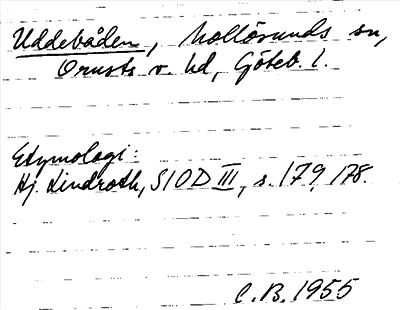 Uddebåden, Mollösunds sn,
Orusts v. hd, Göteb. l.
Etymologi:
Hj. Lindroth, SIOD III, s. 179, 178.
C.B. 1955